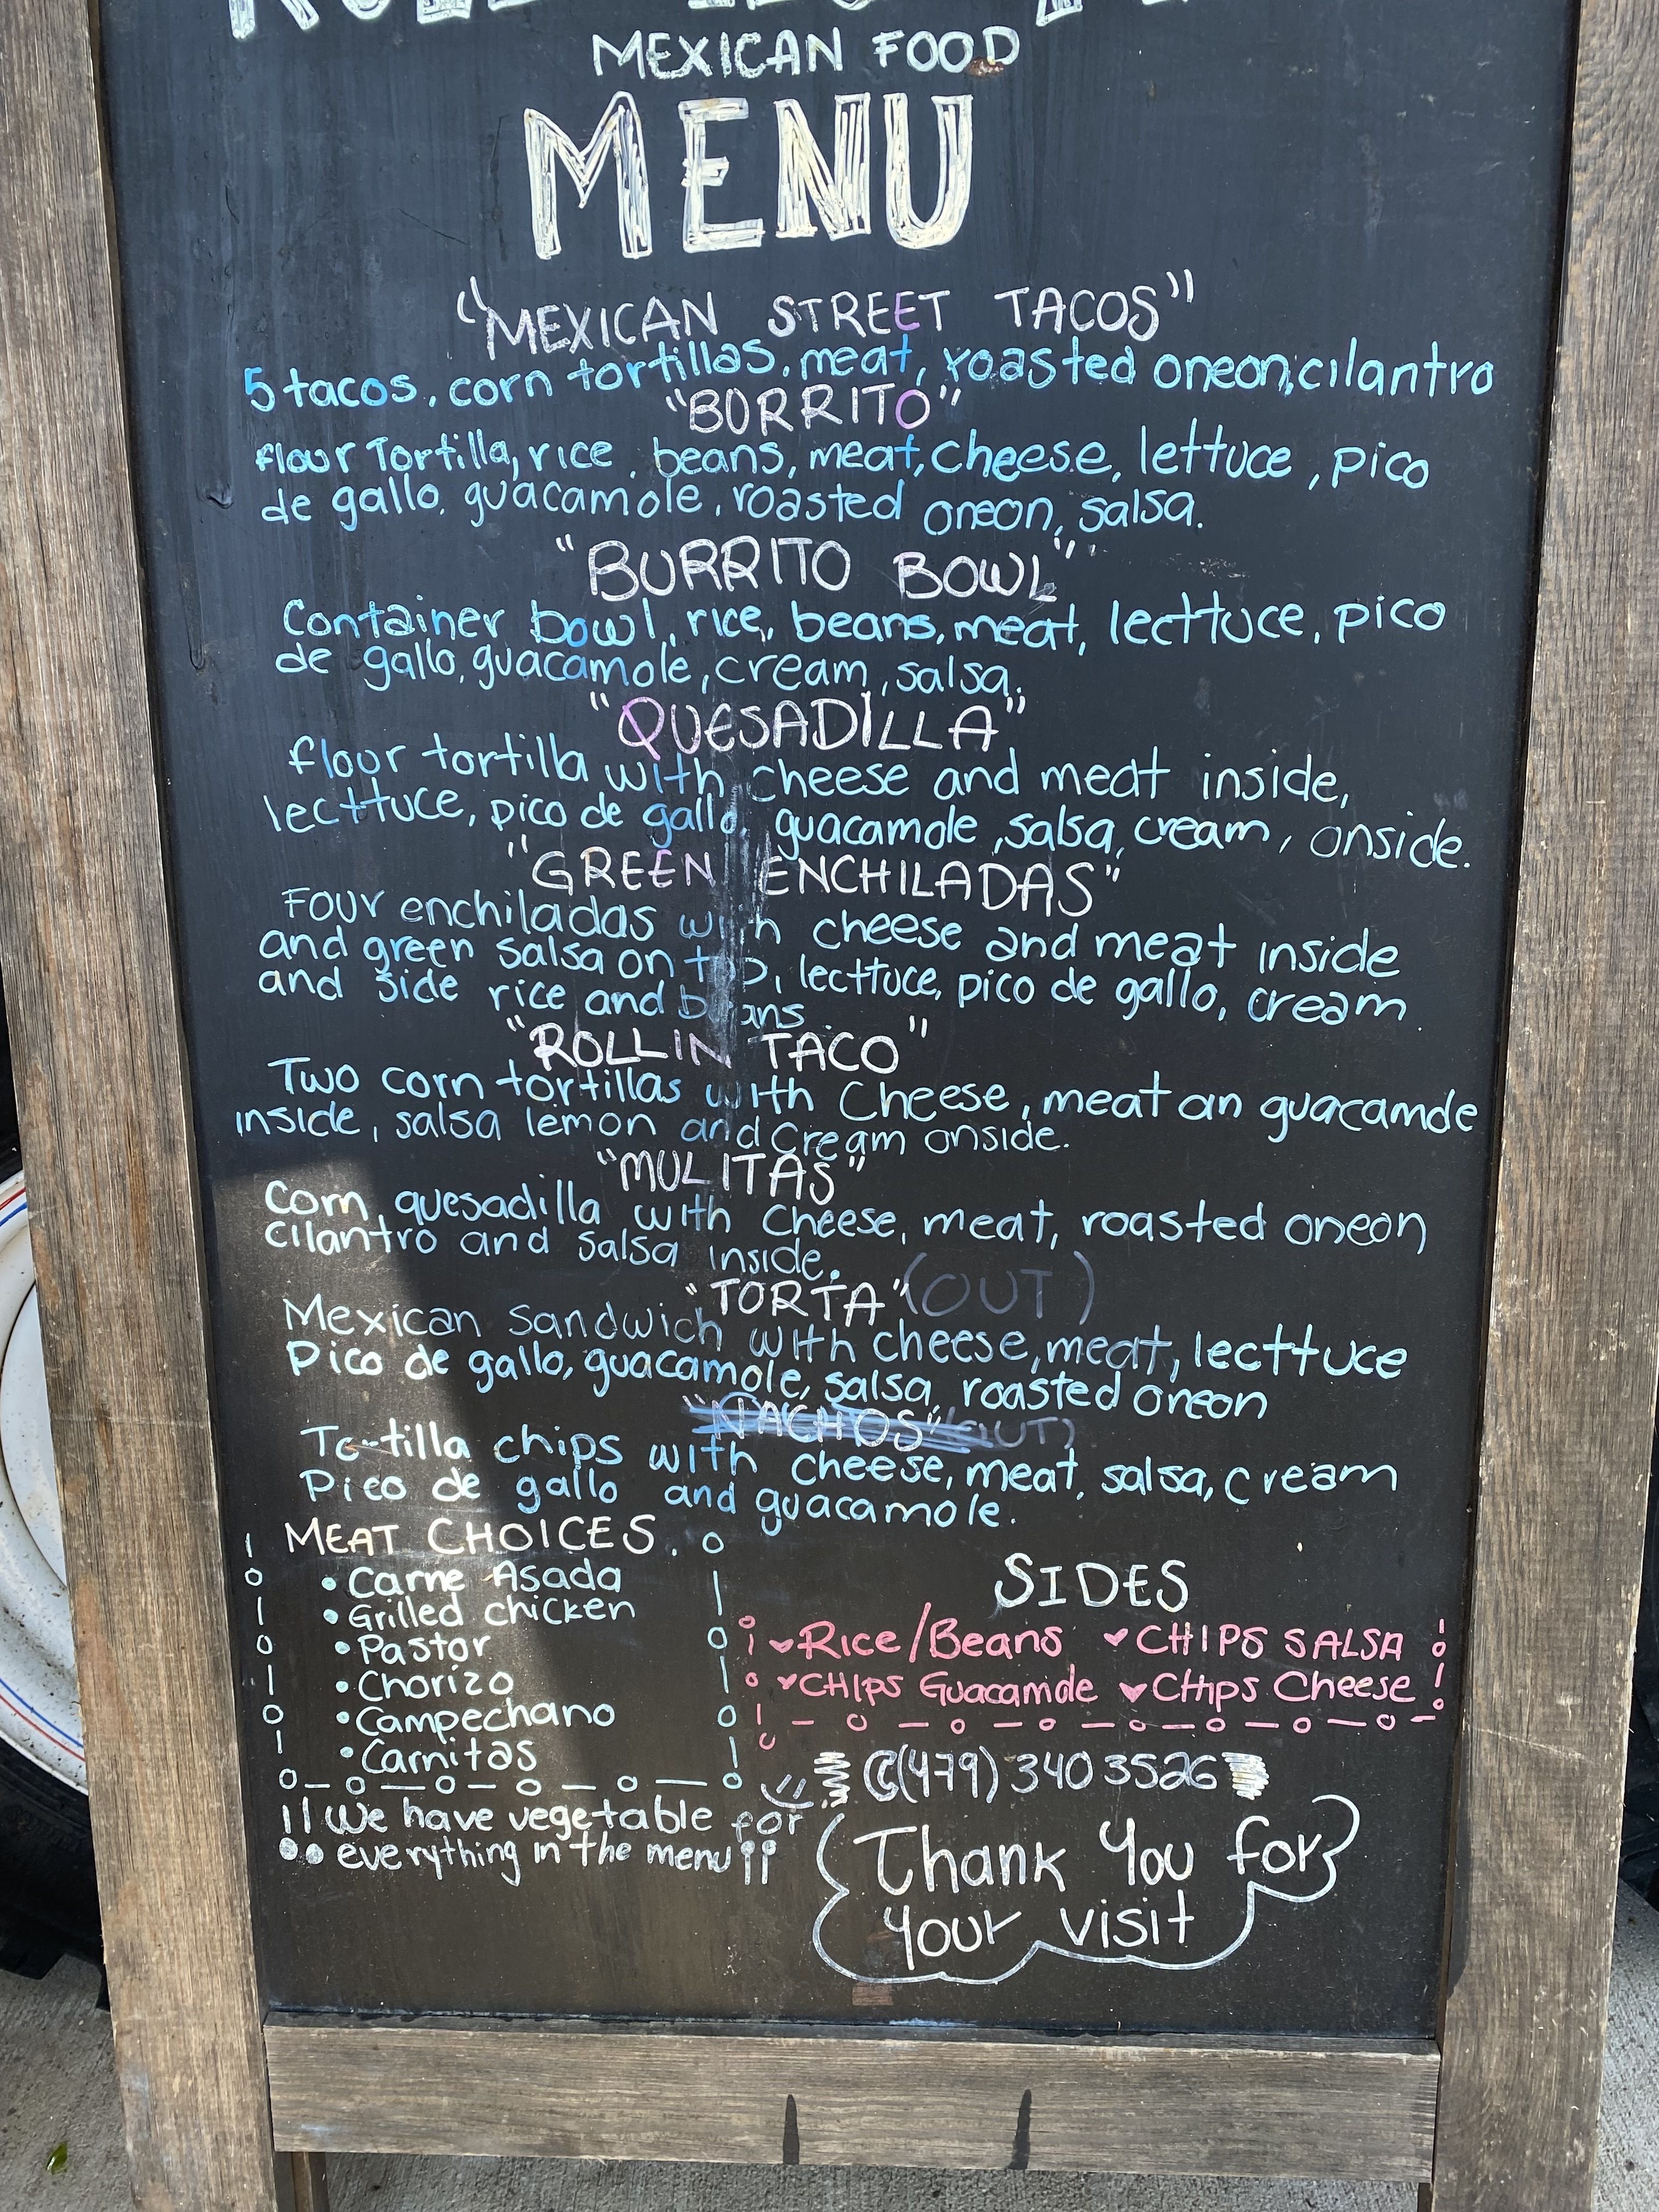 MEXICAN FOOD
MENU
"MEXICAN STREET TACOS"
5 tacos, corn tortillas, meat, roasted oneon, cilantro
"BORRITO"
flour Tortilla, rice, beans, meat, cheese, lettuce, pico
de gallo, guacamole, roasted oneon, salsa.
"BURRITO BOWL"
Container bowl, rice, beans, meat, lecttuce, pico
de gallo, guacamole, cream, salsa.
"QUESADILLA"
flour tortilla with cheese and meat inside,
lecttuce, pico de gallo, guacamole, salsa, cream, onside.
"GREEN ENCHILADAS"
Four enchiladas with cheese and meat inside
and green salsa on top, lecttuce, pico de gallo, cream
and side rice and beans.
"ROLLIN TACO"
Two corn tortillas with Cheese, meat an guacamole
inside, salsa lemon and Cream onside.
"MULITAS"
Corn quesadilla with cheese, meat, roasted oneon
cilantro and salsa inside.
"TORTA" (OUT)
Mexican Sandwich with cheese, meat, lecttuce
Pico de gallo, guacamole, salsa, roasted oneon
"NACHOS" (OUT)
Tortilla chips with cheese, meat, salsa, cream
Pico de gallo and guacamole.
MEAT CHOICES.
• Carne Asada
• Grilled chicken
• Pastor
• Chorizo
• Campechano
• Carnitas
!! We have vegetable for
everything in the menu !!
SIDES
♥ Rice/Beans ♥ CHIPS SALSA
♥ CHIps Guacamole ♥ CHips Cheese
(479) 340 3526
Thank You for
your visit